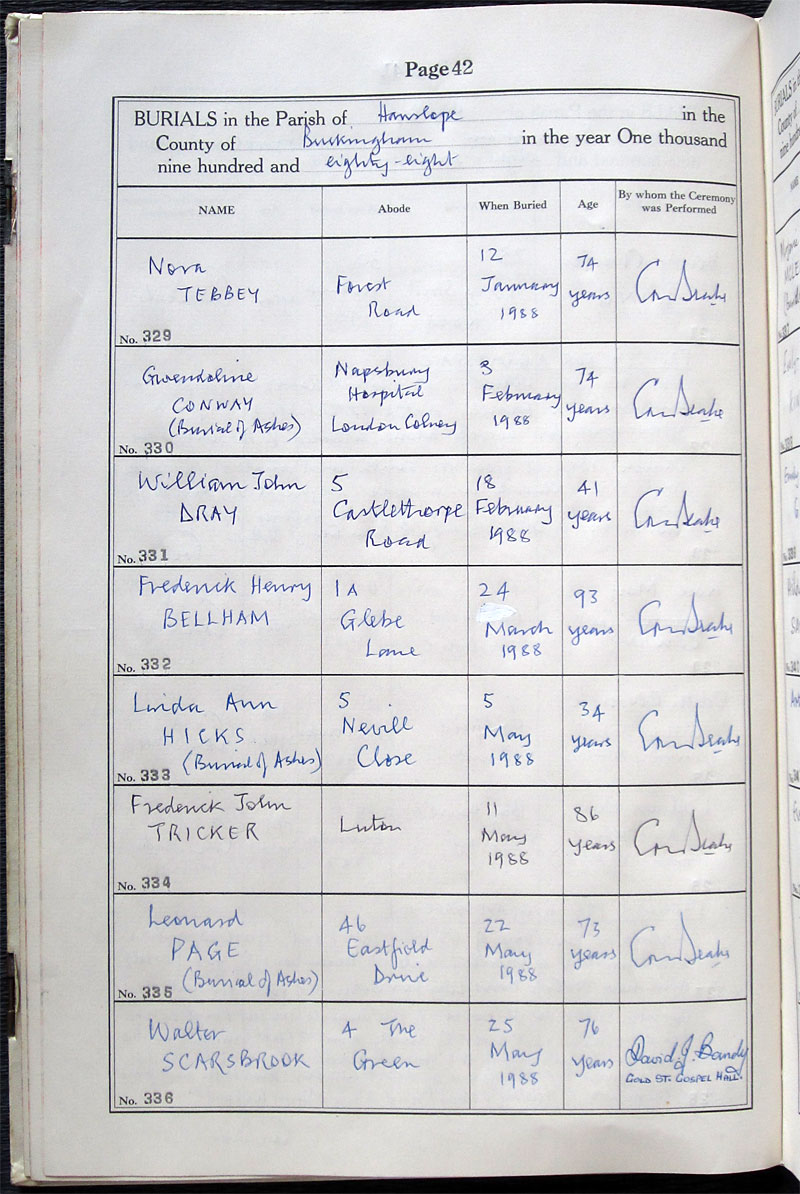 Page 42
BURIALS in the Parish of Hanslope in the
County of Buckingham in the year One thousand
nine hundred and eighty-eight
NAME
Abode
When Buried
Age
By whom the Ceremony
was Performed
Nora
TEBBEY
No. 329
Forest
Road
12
January
1988
74
years
Gwendoline
CONWAY
(Burial of Ashes)
No. 330
Napsbury
Hospital
London Colney
3
February
1988
74
years
William John
DRAY
No. 331
5
Castlethorpe
Road
18
February
1988
41
years
Frederick Henry
BELLHAM
No. 332
1A
Glebe
Lane
24
March
1988
93
years
Linda Ann
HICKS
(Burial of Ashes)
No. 333
5
Nevill
Close
5
May
1988
34
years
Frederick John
TRICKER
No. 334
Luton
11
May
1988
86
years
Leonard
PAGE
(Burial of Ashes)
No. 335
46
Eastfield
Drive
22
May
1988
73
years
Walter
SCARSBROOK
No. 336
4 The
Green
25
May
1988
76
years
David J. Bandy
of
GOLD ST. GOSPEL HALL.